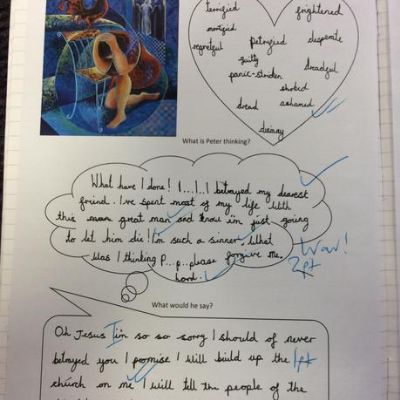 terrified frightened
mortified
regretful petrified desperate
guilty dreadful
panic-striken
shocked
dread ashamed
dismay
What is Peter thinking?
What have I done! I...I...I betrayed my dearest
friend. I've spent most of my life with
this man great man and know im just going
to let him die! I'm such a sinner, What
Was I thinking P...p...please forgive me,
Wow!
lord.
2pt
What would he say?
Oh Jesus I'm so so sorry I should of never
betrayed you I promise I will build up the 1pt
church on me I will tell the people of the